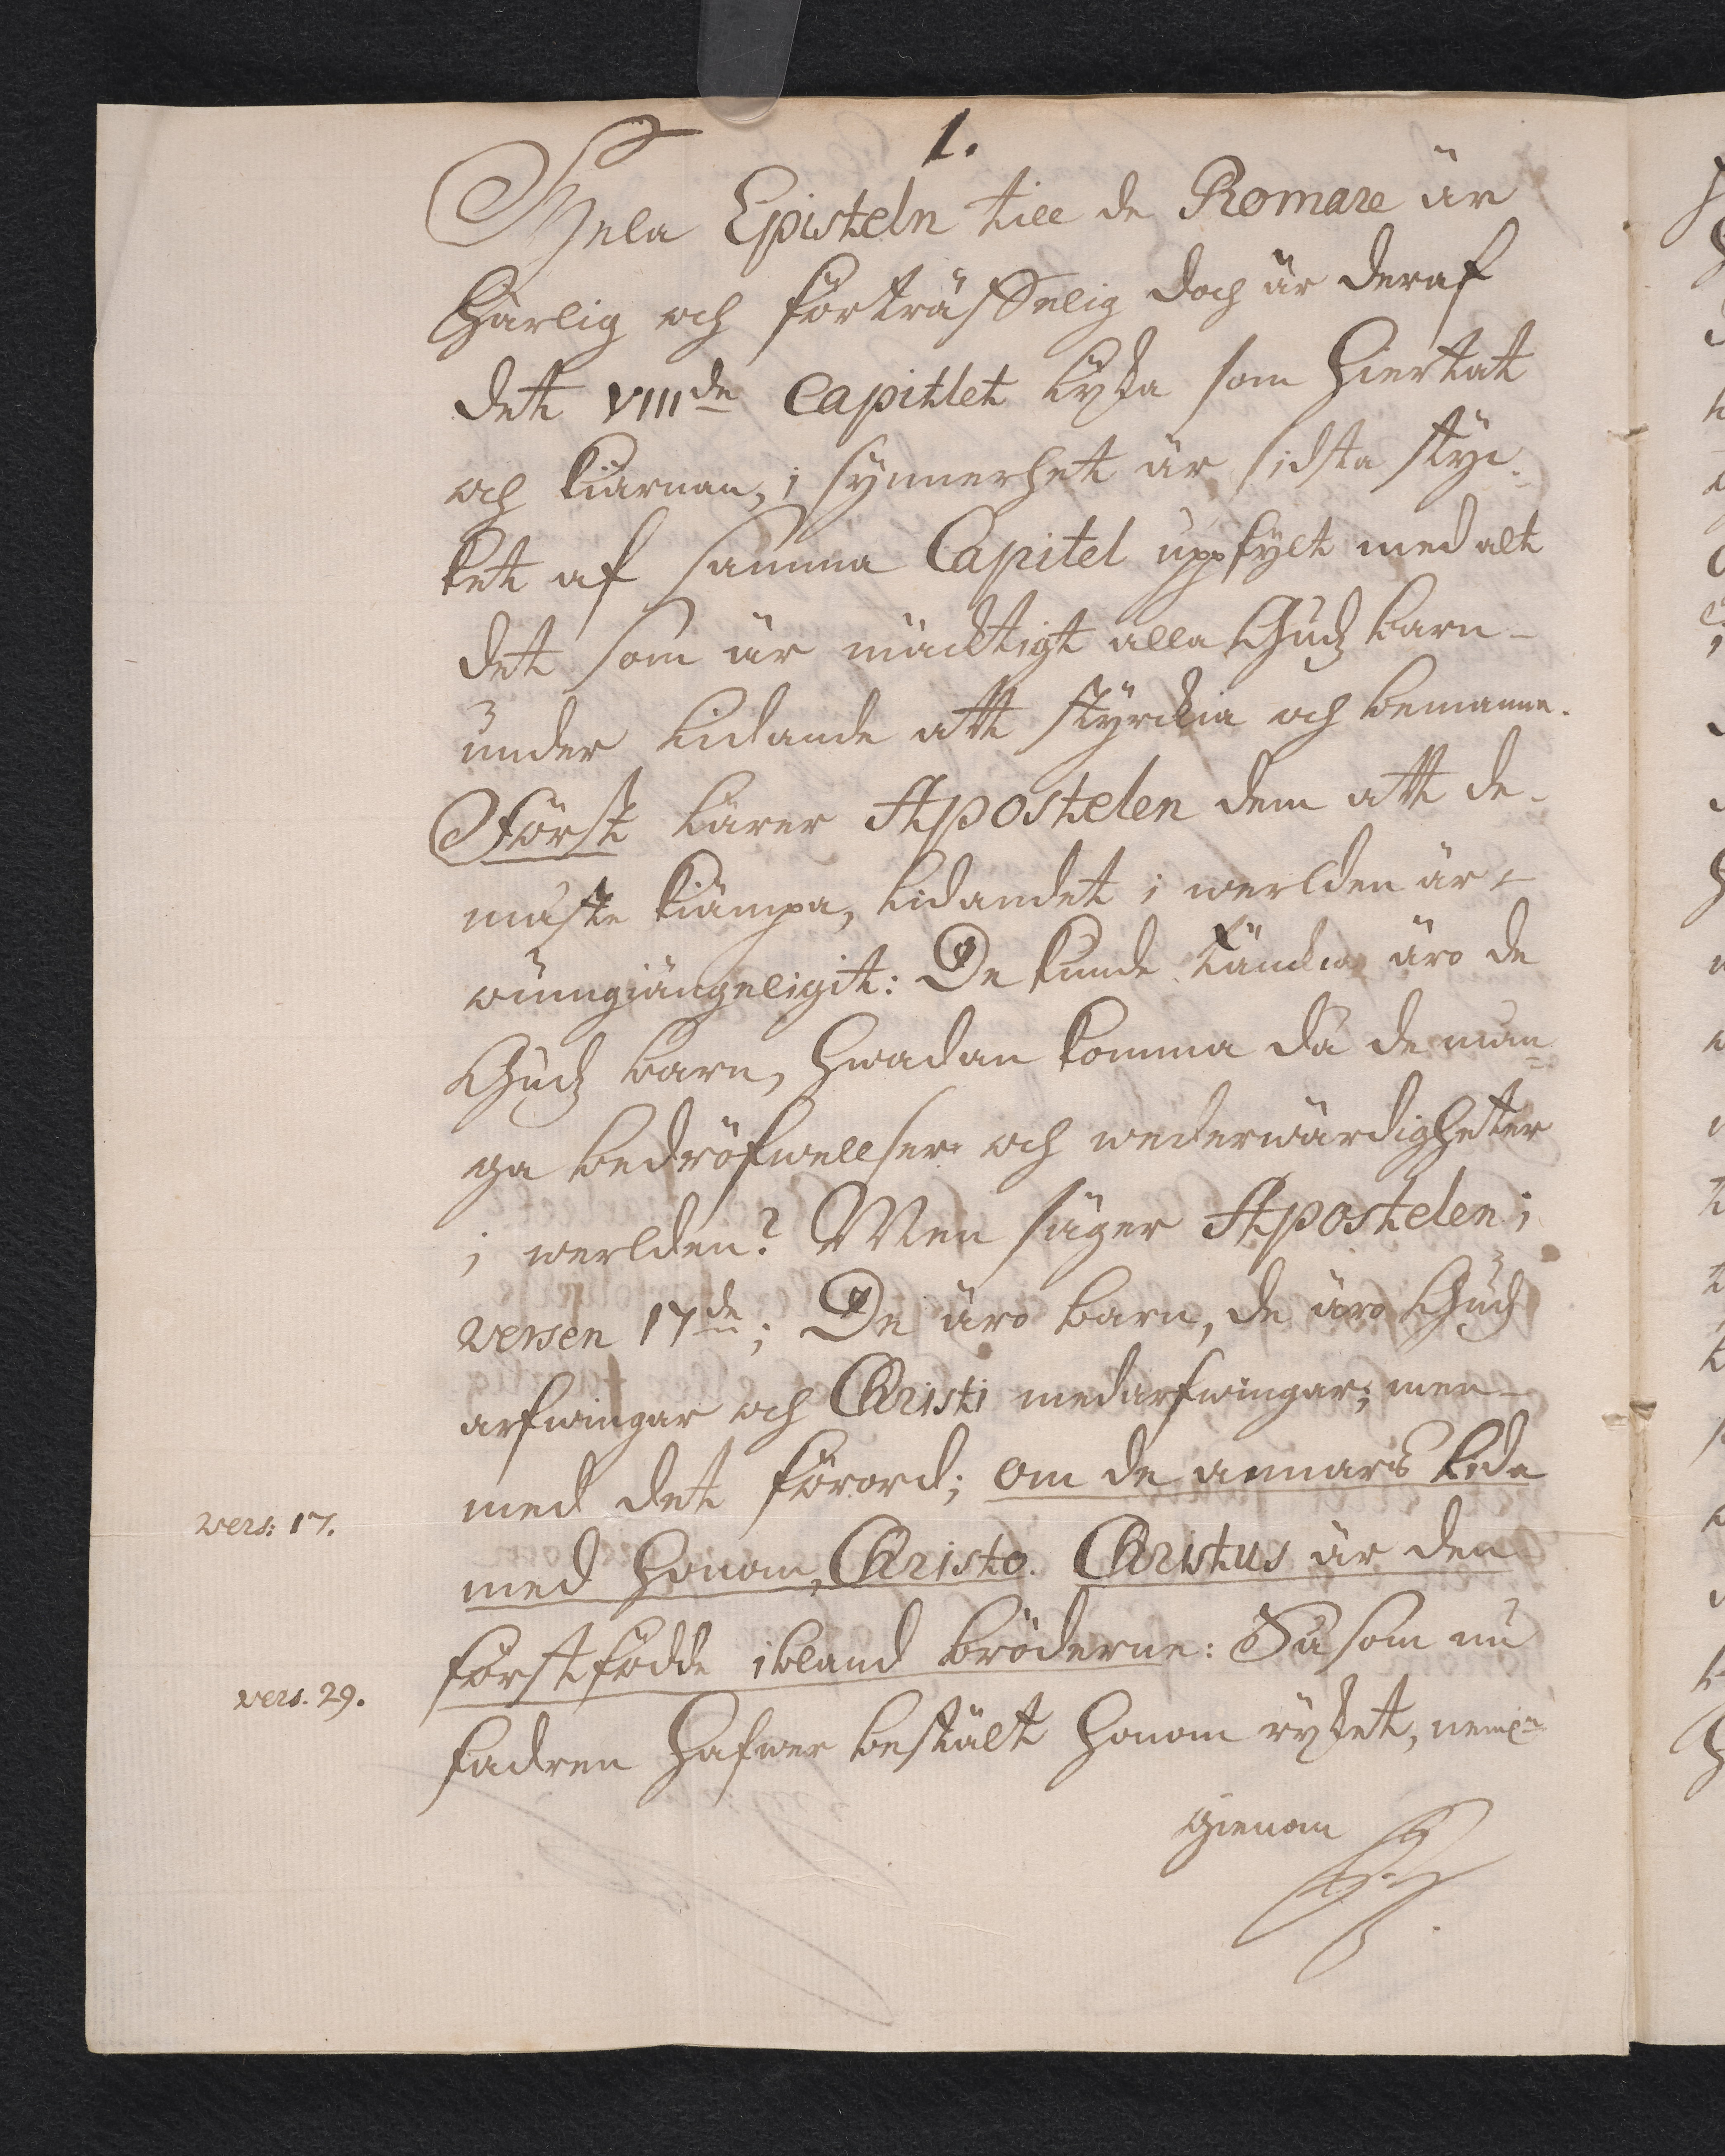 1.
Hela Episteln till de Romare är
Härlig och förträffelig doch är deraf
det VIIIde Capitlet lyka som Hiertat
och kiärnan, i synnerhet är sidsta styc-
ket af samma Capitel uppfylt med alt
det som är mäcktigt alla Gudz barn
under Lidande att styrckia och bemanna.
Först lärer Apostelen dem att de
måste kiämpa, lidandet i werlden är
oumgiängeligit: De kunde täncka äro de
Gudz barn, Hwadan komma då de mån-
ga bedröfwellser och wederwärdigheter
i werlden? Men säger Apostelen i
versen 17de; De äro barn, de äro Gudz
arfwingar och Christi medarfwingar; men
med det förord; om de annars lida
vers: 17.
med Honom, Christo. Christus är den
förstfödde ibland bröderne: Så som nu
vers. 29.
fadren Hafwer bestält Honom ryket, neml:
gienom